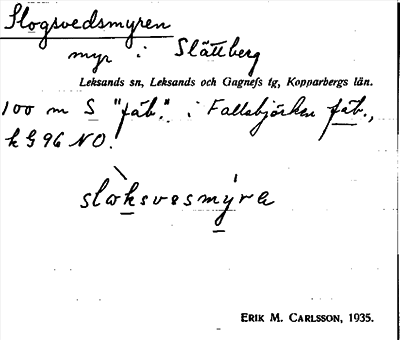 Slogsvedsmyren
myr i Slättberg
Leksands sn, Leksands och Gagnefs tg, Kopparbergs län.
100 m S "fäb." i Fallabjörken fäb.,
k G 96 NO.
slωksvesmýra
ERIK M. CARLSSON, 1935.